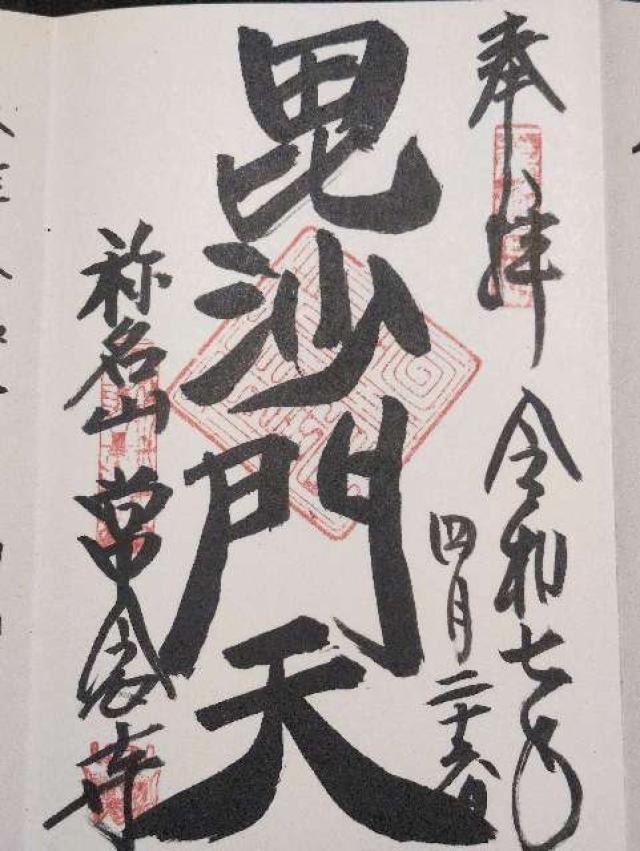 奉拝
令和七年
四月二十六日
毘沙門天
称名山 常念寺